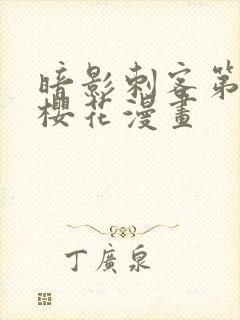 暗影刺客第
樱花漫畫
丁廣泉